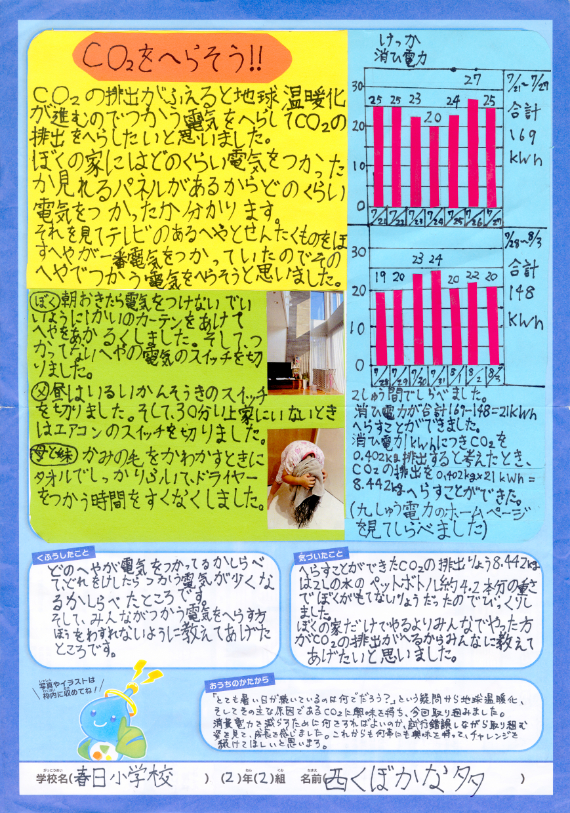 CO₂をへらそう!!
CO₂の排出がふえると地球温暖化
が進むのでつかう電気をへらしてCO₂の
排出をへらしたいと思いました。
ぼくの家にはどのくらい電気をつかった
か見れるパネルがあるからどのくらい
電気をつかったか分かります。
それを見てテレビのあるへやとせんたくものをほ
すへやが一番電気をつかっていたのでその
へやでつかう電気をへらそうと思いました。
ぼく 朝おきたら電気をつけないでい
いように1かいのカーテンをあけて
へやをあかるくしました。そして、つ
かってないへやの電気のスイッチを切
りました。
父 昼はいるいかんそうきのスイッチ
を切りました。そして、30分以上家にいないとき
はエアコンのスイッチを切りました。
母と妹 かみの毛をかわかすときに
タオルでしっかりふいて、ドライヤー
をつかう時間をすくなくしました。
けっか
消ひ電力
30
20
10
0
25 25 23 20 23 27 25
7/23 7/24 7/25 7/26 7/27
7/21〜7/27
合計
169
kWh
30
20
10
0
19 20 23 24 20 22 20
7/28 7/29 7/30 7/31 8/1 8/2 8/3
7/28〜8/3
合計
148
kWh
2しゅう間でしらべました。
消ひ電力が合計169-148=21kWh
へらすことができました。
消ひ電力1kWhにつきCO₂を
0.402kg排出すると考えたとき、
CO₂の排出を0.402kg×21kWh=
8.442kgへらすことができた。
(九しゅう電力のホームページ
を見てしらべました)
くふうしたこと
どのへやが電気をつかってるかしらべ
て、どれをけしたらつかう電気が少くな
るかしらべたところです。
そして、みんながつかう電気をへらす方
ほうをわすれないように教えてあげた
ところです。
気づいたこと
へらすことができたCO₂の排出りょう8.442kg
は2Lの水のペットボトル約4.2本分の重さ
でぼくがもてないりょうだったのでびっくりし
ました。
ぼくの家だけでやるよりみんなでやった方
がCO₂の排出がへるからみんなに教えて
あげたいと思いました。
写真やイラストは
枠内に収めてね!
おうちのかたから
「とても暑い日が続いているのは何でだろう?」という疑問から地球温暖化、
そしてその主な原因であるCO₂に興味を持ち、今回取り組みました。
消費電力を減らすために何をすればよいのか、試行錯誤しながら取り組む
姿を見て、成長を感じました。これからも何事にも興味を持って、チャレンジを
続けてほしいと思います。
学校名(春日小学校) (2)年(2)組 名前(西くぼかな多)